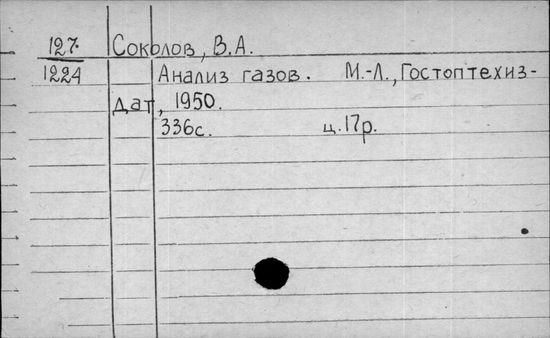 127. Соколов, В.А.
1224 Анализ газов. М.-Л., Гостоптехиз-
дат, 1950.
336с. ц.17р.